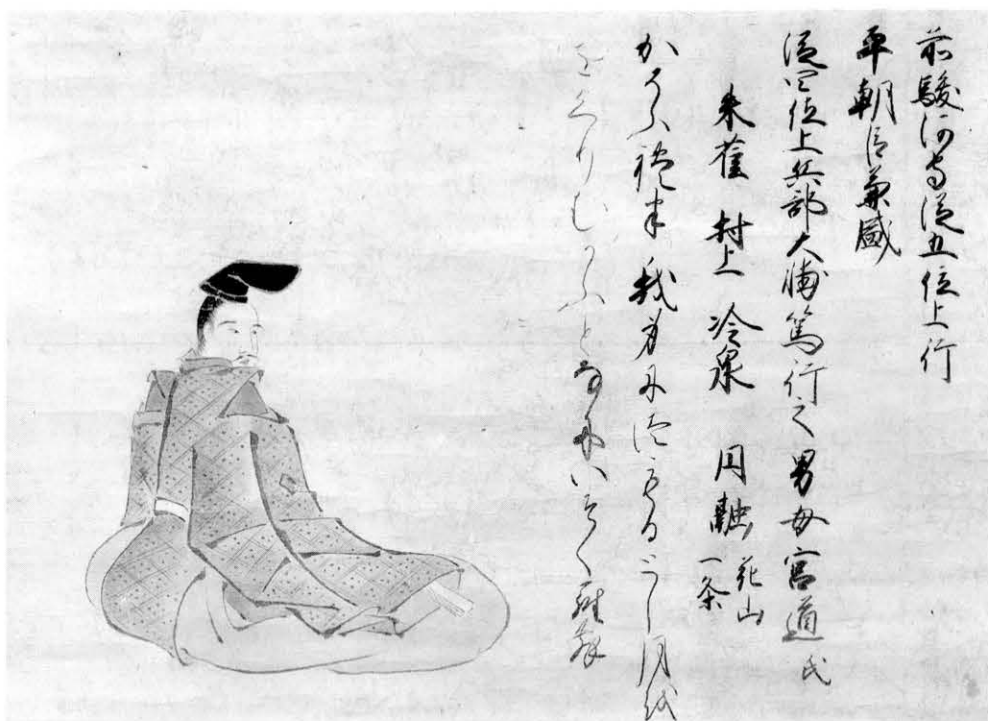 前駿河守従五位上行
平朝臣兼盛
従四位上兵部大輔篤行之男母宮道氏
朱雀 村上 冷泉 円融 花山 一条
かそふれは我身につもるとし月を
をくりむかふとなにいそくらむ